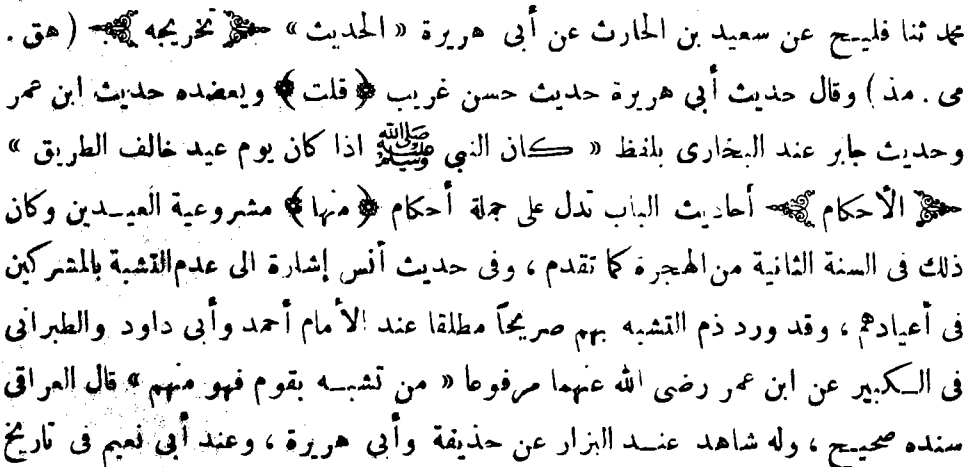 محمد ثنا فليح عن سعيد بن الحارث عن أبى هريرة « الحديث » تخريجه ( هق .
مى . مذ ) وقال حديث أبي هريرة حديث حسن غريب ﴿ قلت ﴾ ويعضده حديث ابن عمر
وحديث جابر عند البخارى بلفظ « كان النبي ﷺ اذا كان يوم عيد خالف الطريق »
الأحكام أحاديث الباب تدل على جملة أحكام ﴿ منها ﴾ مشروعية العيدين وكان
ذلك فى السنة الثانية من الهجرة كما تقدم ، وفى حديث أنس إشارة الى عدم التشبة بالمشركين
فى أعيادهم ، وقد ورد ذم التشبه بهم صريحاً مطلقا عند الأمام أحمد وأبى داود والطبرانى
فى الكبير عن ابن عمر رضى الله عنهما مرفوعا « من تشبه بقوم فهو منهم » قال العراقى
سنده صحيح ، وله شاهد عند البزار عن حذيفة وأبى هريرة ، وعند أبي نعيم فى تاريخ